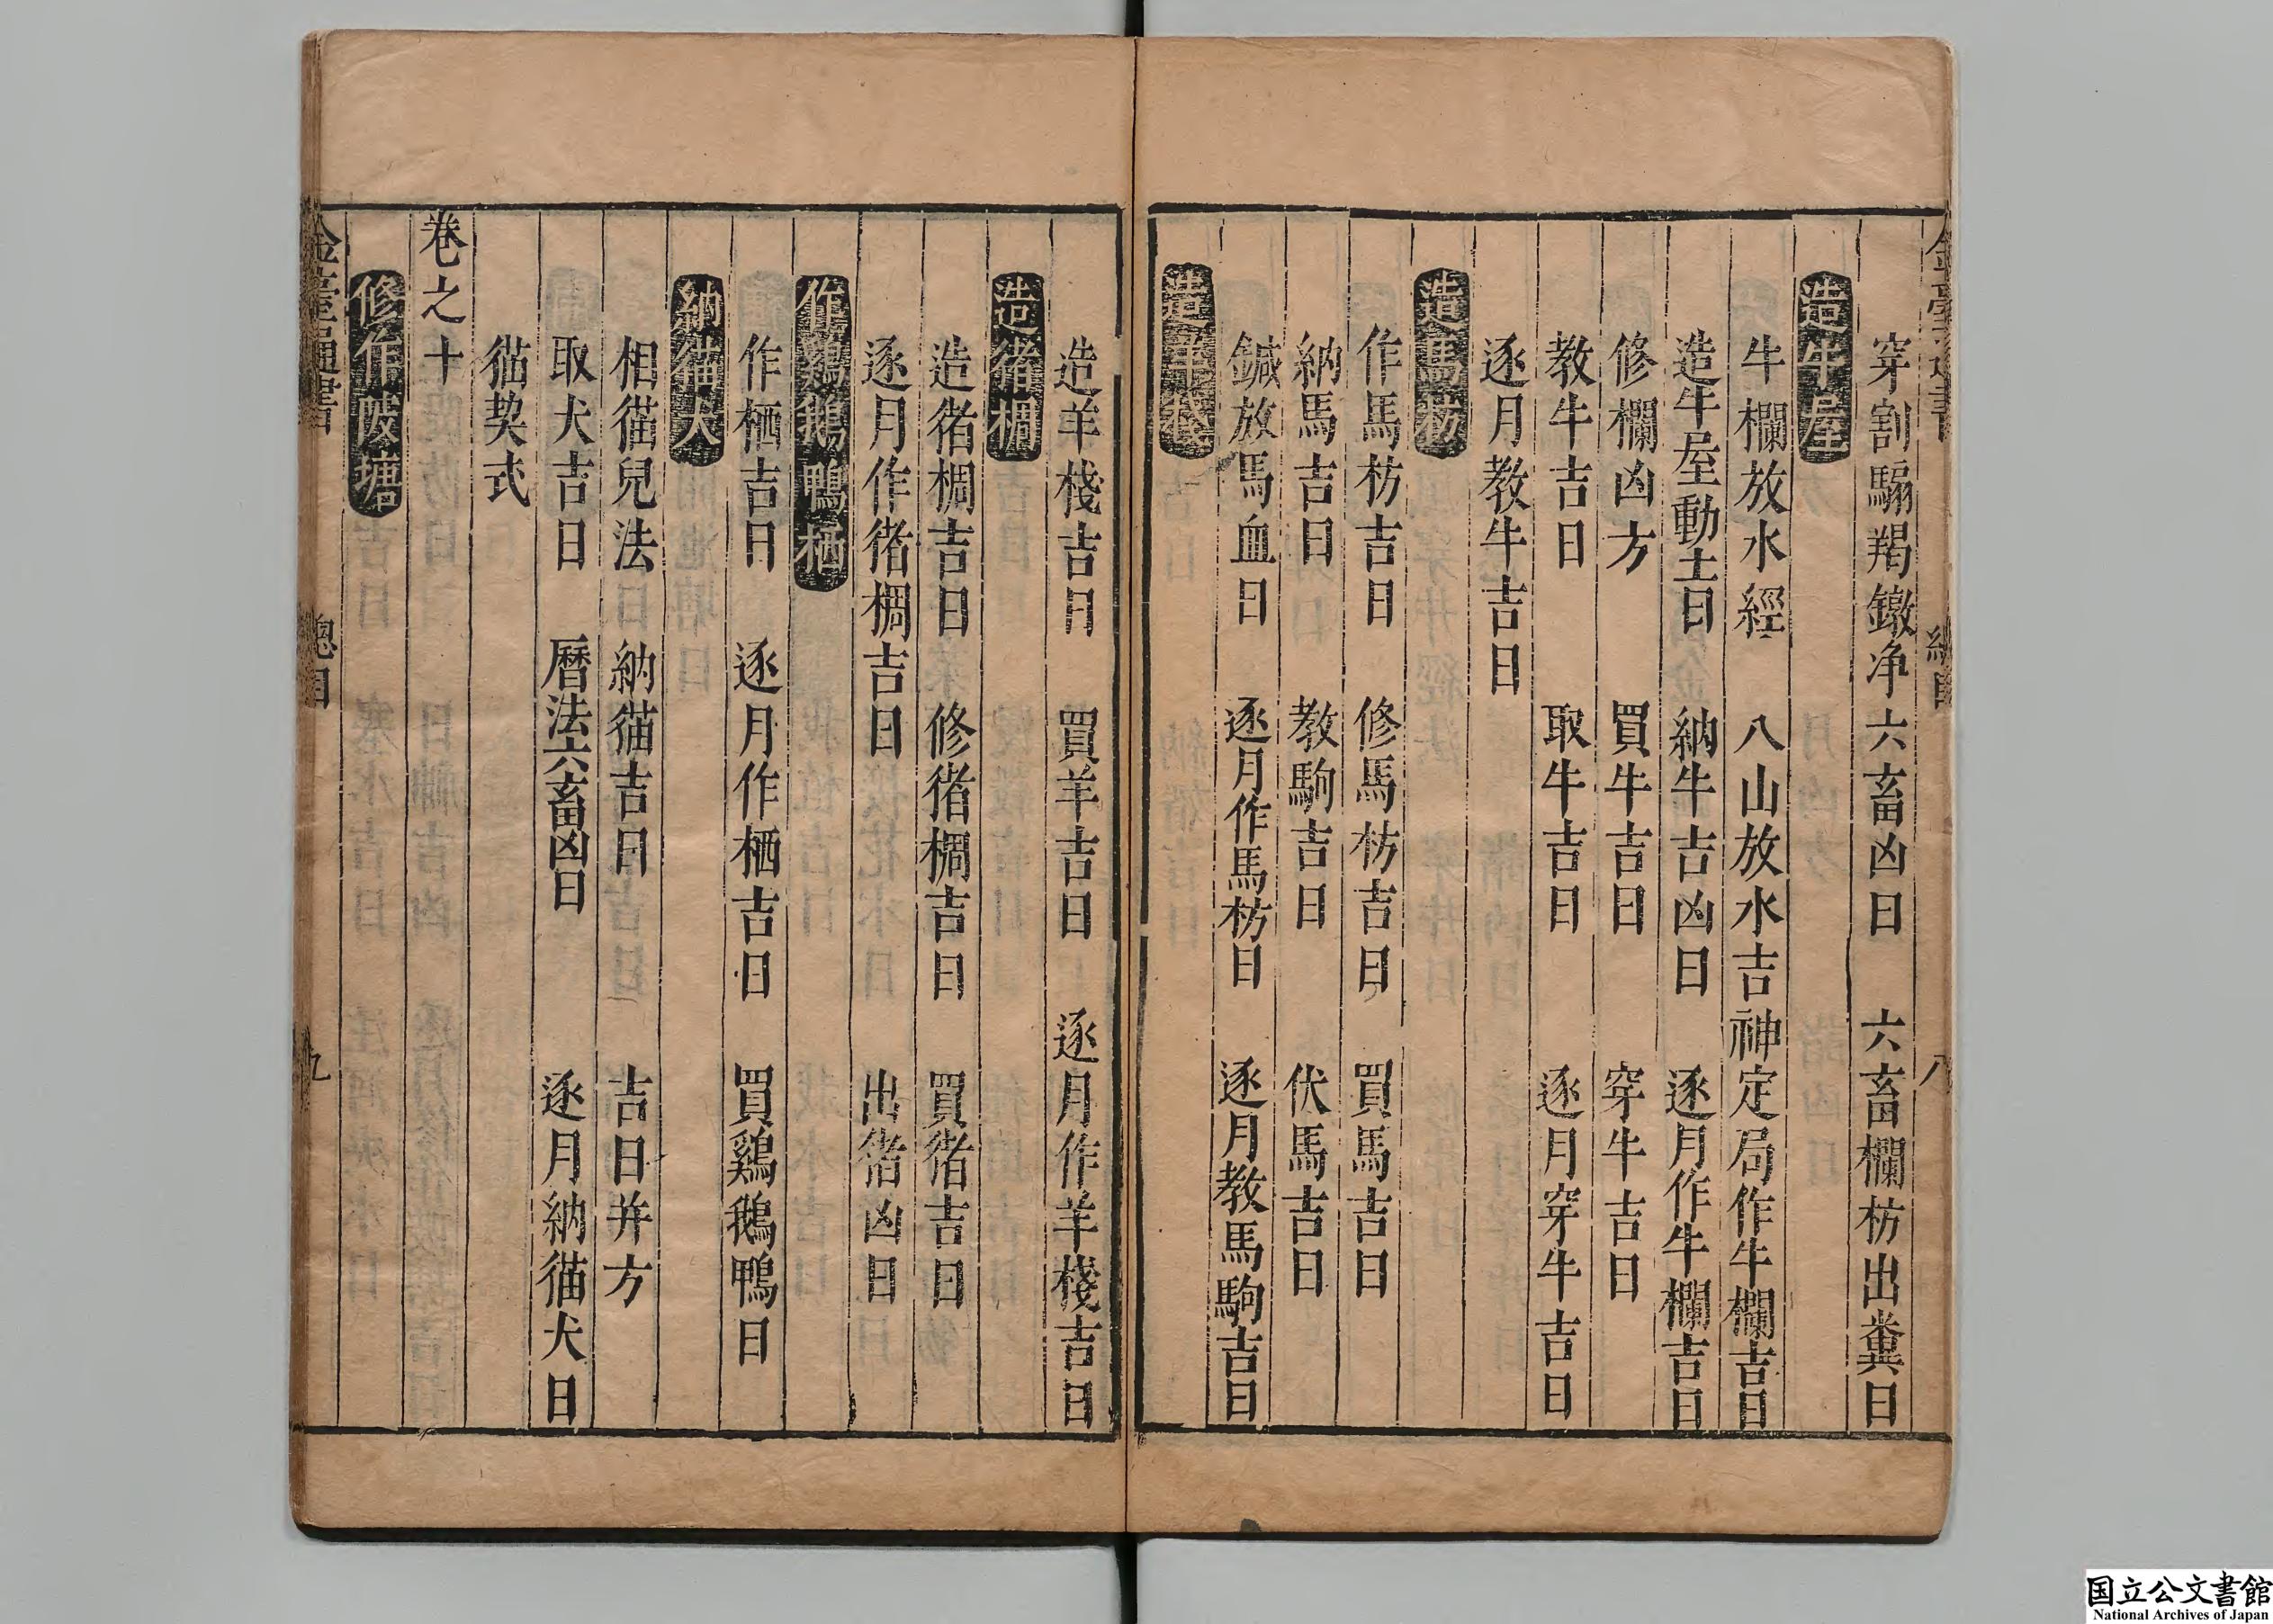 穿割騸羯鐓净六畜凶日　六畜欄枋出糞日
造牛屋
牛欄放水經　八山放水吉神定局作牛欄吉日
造牛屋動土日　納牛吉凶日　逐月作牛欄吉日
修欄凶方　買牛吉日　穿牛吉日
教牛吉日　取牛吉日　逐月穿牛吉日
逐月教牛吉日
造馬枋
作馬枋吉日　修馬枋吉日　買馬吉日
納馬吉日　教駒吉日　伏馬吉日
鍼放馬血日　逐月作馬枋日　逐月教馬駒吉日
造羊棧
造羊棧吉日　買羊吉日　逐月作羊棧吉日
造猪椆
造猪椆吉日　修猪椆吉日　買猪吉日
逐月作猪椆吉日　出猪凶日
作鷄鵝鴨栖
作栖吉日　逐月作栖吉日　買鷄鵝鴨日
納猫犬
相猫兒法　納猫吉日　吉日并方
取犬吉日　曆法六畜凶日　逐月納猫犬日
猫契式
卷之十
修作陂塘
金臺通書　總目　九
国立公文書館
National Archives of Japan